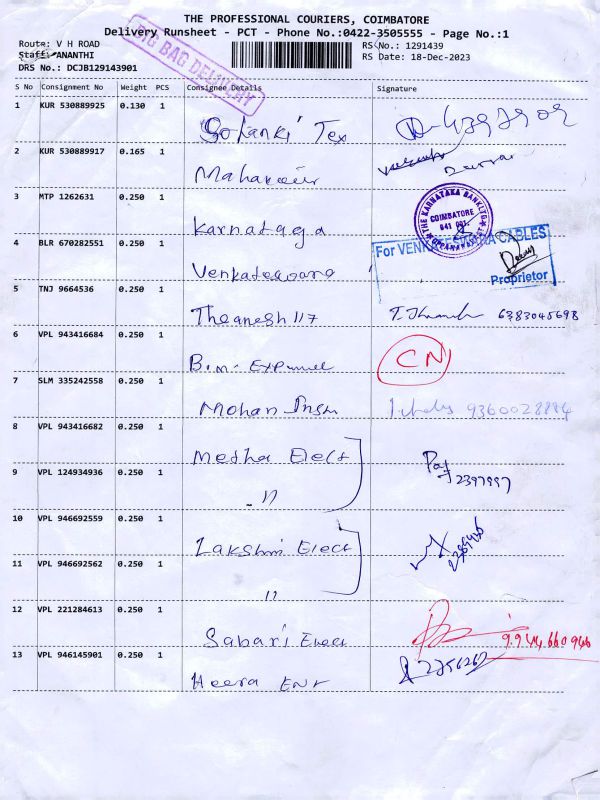 THE PROFESSIONAL COURIERS, COIMBATORE
Delivery Runsheet - PCT - Phone No.:0422-3505555 - Page No.:1
Route: V H ROAD
RS No.: 1291439
Staff: ANANTHI
RS Date: 18-Dec-2023
DRS No.: DCJB129143901
BIG BAG DELIVERY
S No Consignment No Weight PCS Consignee Details Signature
1 KUR 530889925 0.130 1 Solanki Tex
2 KUR 530889917 0.165 1 Mahaveer
3 MTP 1262631 0.250 1 Karnataga
THE KARNATAKA BANK LTD
COIMBATORE
641 001
4 BLR 670282551 0.250 1 Venkateswara
For VENKATESWARA CABLES
Proprietor
5 TNJ 9664536 0.250 1 Theanesh 117 6383045698
6 VPL 943416684 0.250 1 B.m. CN
7 SLM 335242558 0.250 1 Mohan 9360028884
8 VPL 943416682 0.250 1 Metha Elect
2397997
9 VPL 124934936 0.250 1 - 11
10 VPL 946692559 0.250 1 Lakshmi Elect
11 VPL 946692562 0.250 1 11
12 VPL 221284613 0.250 1 Sabari Elect 9944660946
13 VPL 946145901 0.250 1 Heera Ent